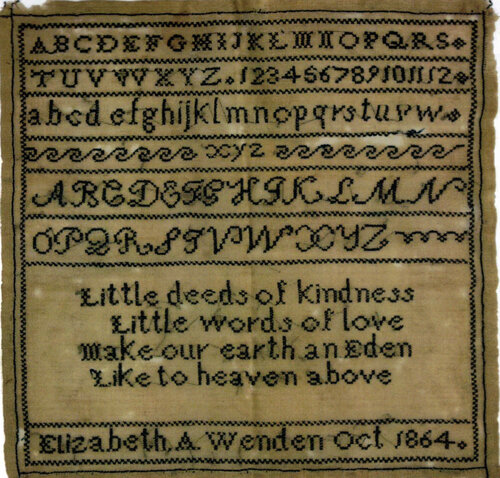 ABCDEFGHIJKLMNOPQRS
TUVWXYZ. 123456789101112
abcdefghijklmnopqrstuvw
xyz
ABCDEFGHIKLMN
OPQRSTVWXYZ
Little deeds of kindness
Little words of love
Make our earth an Eden
Like to heaven above
Elizabeth A. Wenden Oct 1864.